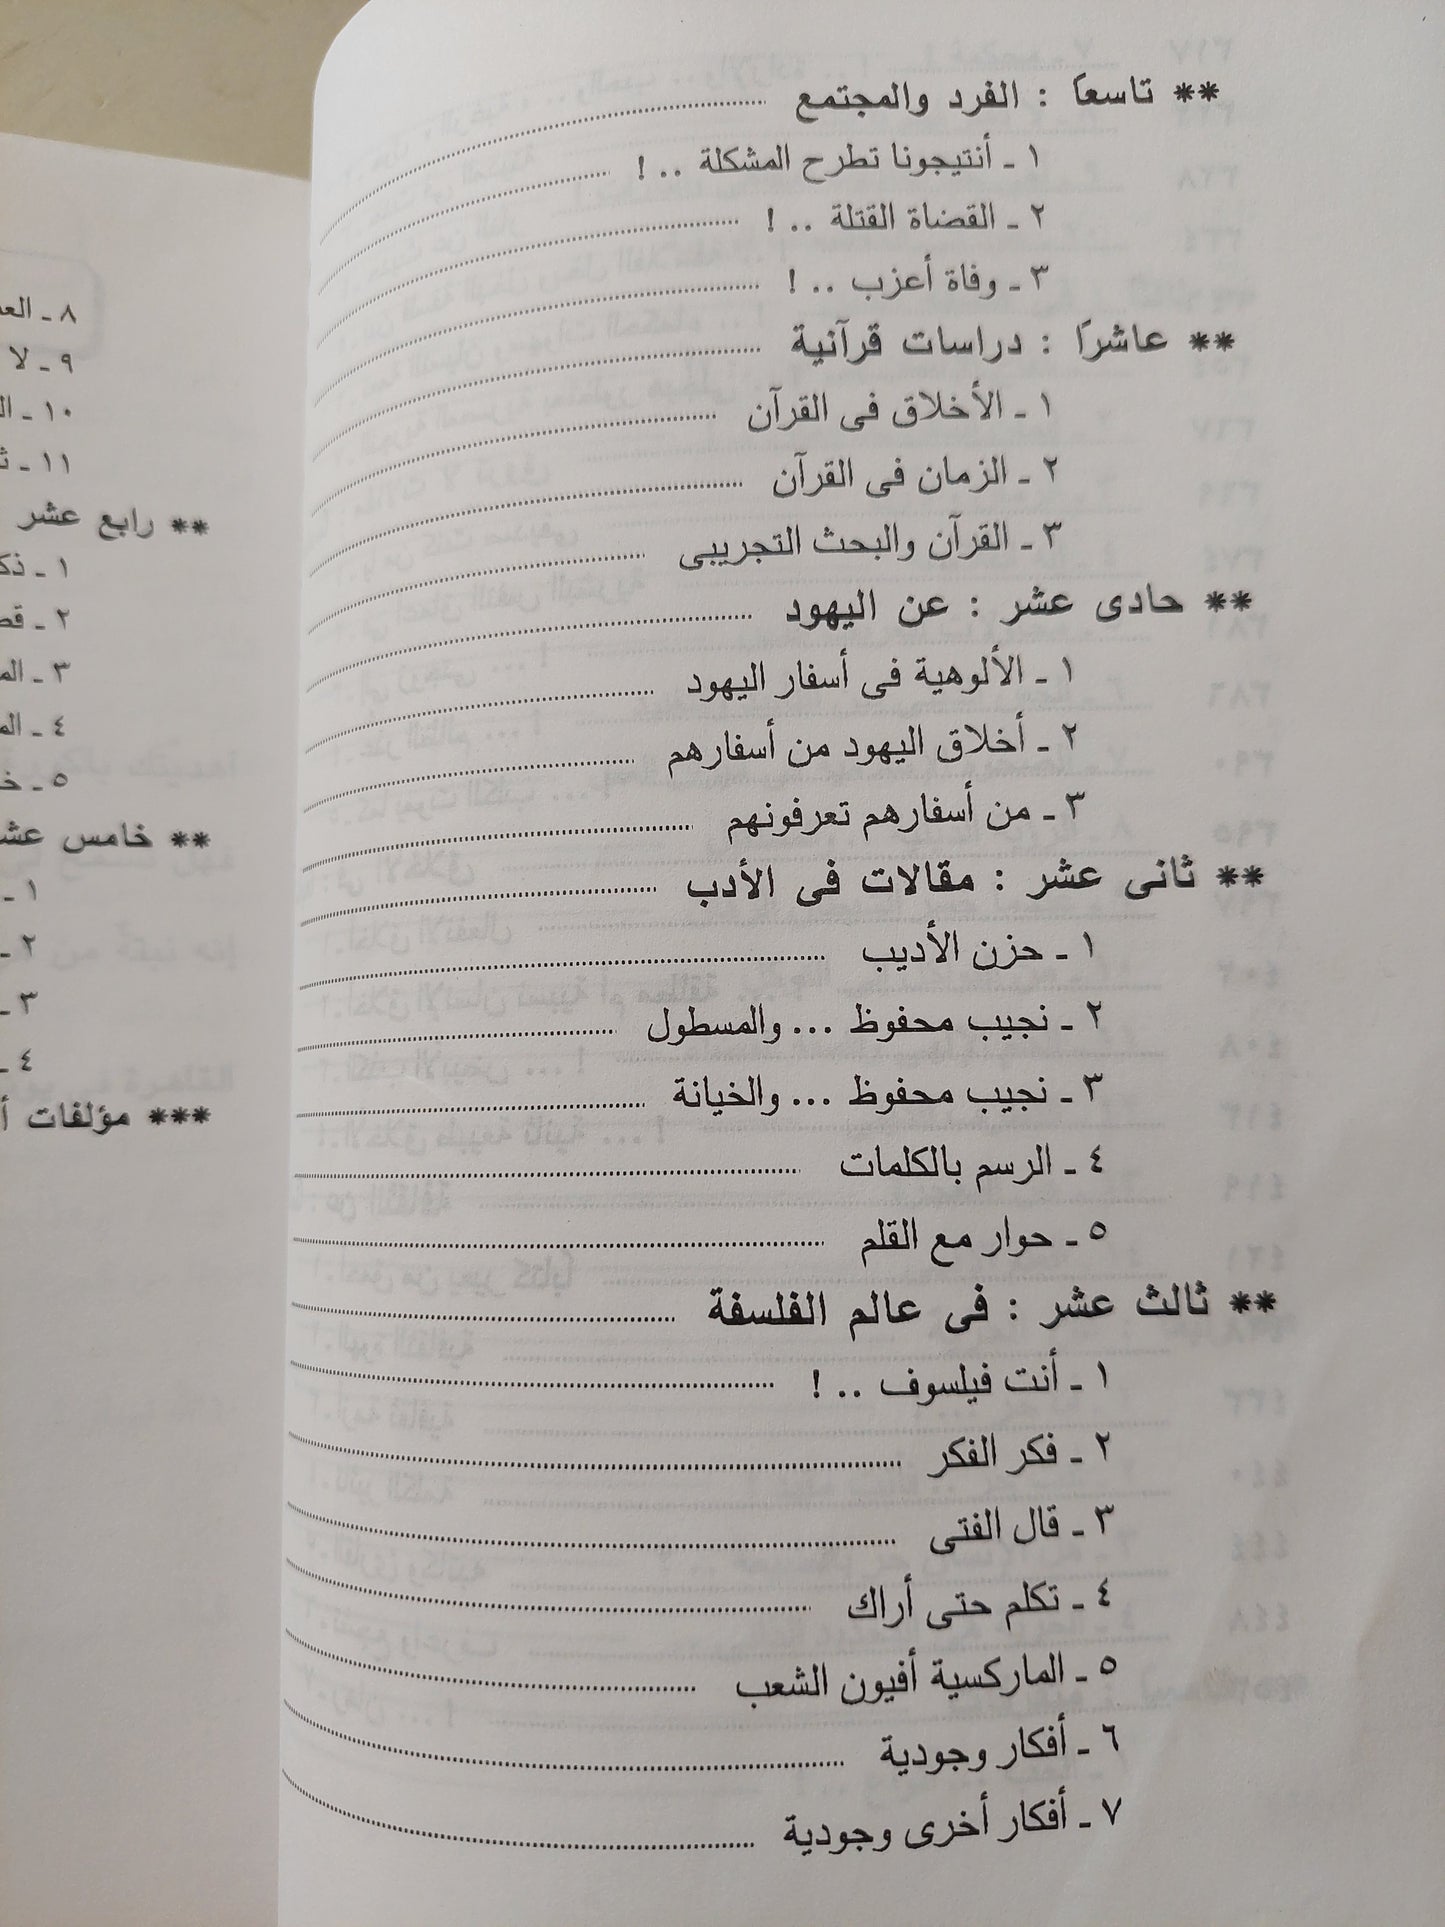 ** تاسعاً : الفرد والمجتمع
١ ـ أنتيجونا تطرح المشكلة .. !
٢ ـ القضاة القتلة .. !
٣ ـ وفاة أعزب .. !
** عاشراً : دراسات قرآنية
١ ـ الأخلاق فى القرآن
٢ ـ الزمان فى القرآن
٣ ـ القرآن والبحث التجريبى
** حادى عشر : عن اليهود
١ ـ الألوهية فى أسفار اليهود
٢ ـ أخلاق اليهود من أسفارهم
٣ ـ من أسفارهم تعرفونهم
** ثانى عشر : مقالات فى الأدب
١ ـ حزن الأديب
٢ ـ نجيب محفوظ ... والمسطول
٣ ـ نجيب محفوظ ... والخيانة
٤ ـ الرسم بالكلمات
٥ ـ حوار مع القلم
** ثالث عشر : فى عالم الفلسفة
١ ـ أنت فيلسوف .. !
٢ ـ فكر الفكر
٣ ـ قال الفتى
٤ ـ تكلم حتى أراك
٥ ـ الماركسية أفيون الشعب
٦ ـ أفكار وجودية
٧ ـ أفكار أخرى وجودية
٨ ـ
٩ ـ لا
١٠ ـ
١١ ـ
** رابع عشر
١ ـ
٢ ـ
٣ ـ
٤ ـ
٥ ـ
** خامس
١ ـ
٢ ـ
٣ ـ
٤ ـ
*** مؤلفات